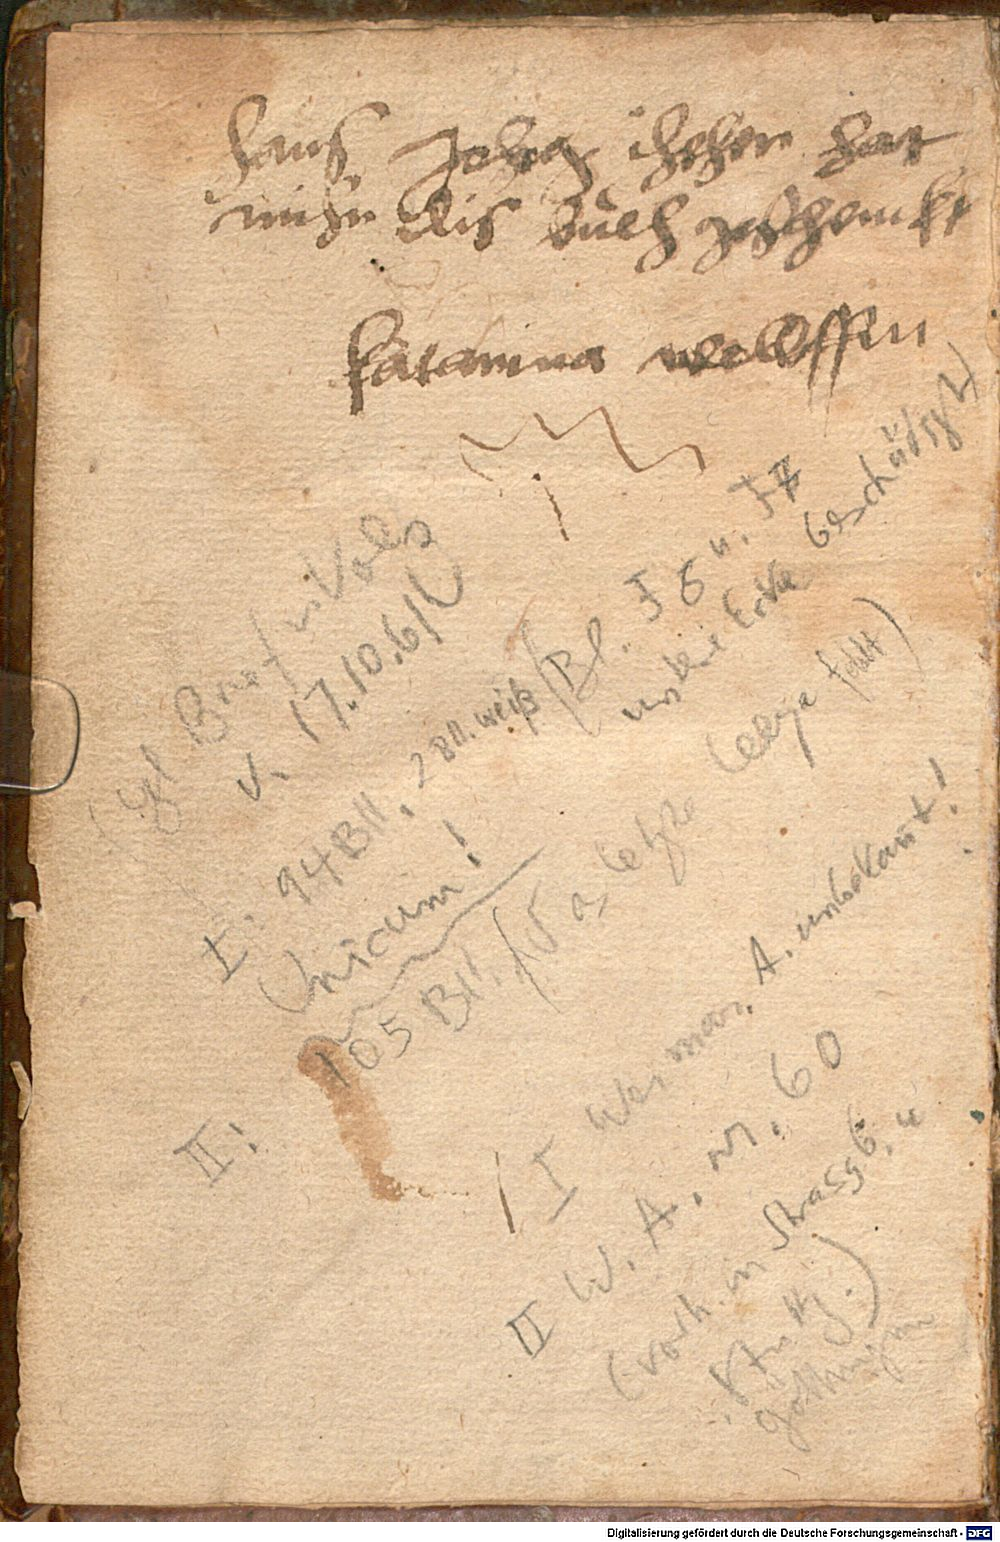 hans hat
mihr dis buch geschenckt
katarina wolffin
(vgl Brief
v. 17.10.61)
I. 94 Bll, 2 Bll. weiß (Bl. J 6 u. J 7
untere Ecke beschädigt)
Unicum!
II: 105 Bll. (letzte leere fehlt)
I Weimar. A. unbekannt!
II W. A. Nr. 60
(vorh. in Strassb. u
Stuttg.)
Göttingen
Digitalisierung gefördert durch die Deutsche Forschungsgemeinschaft - DFG